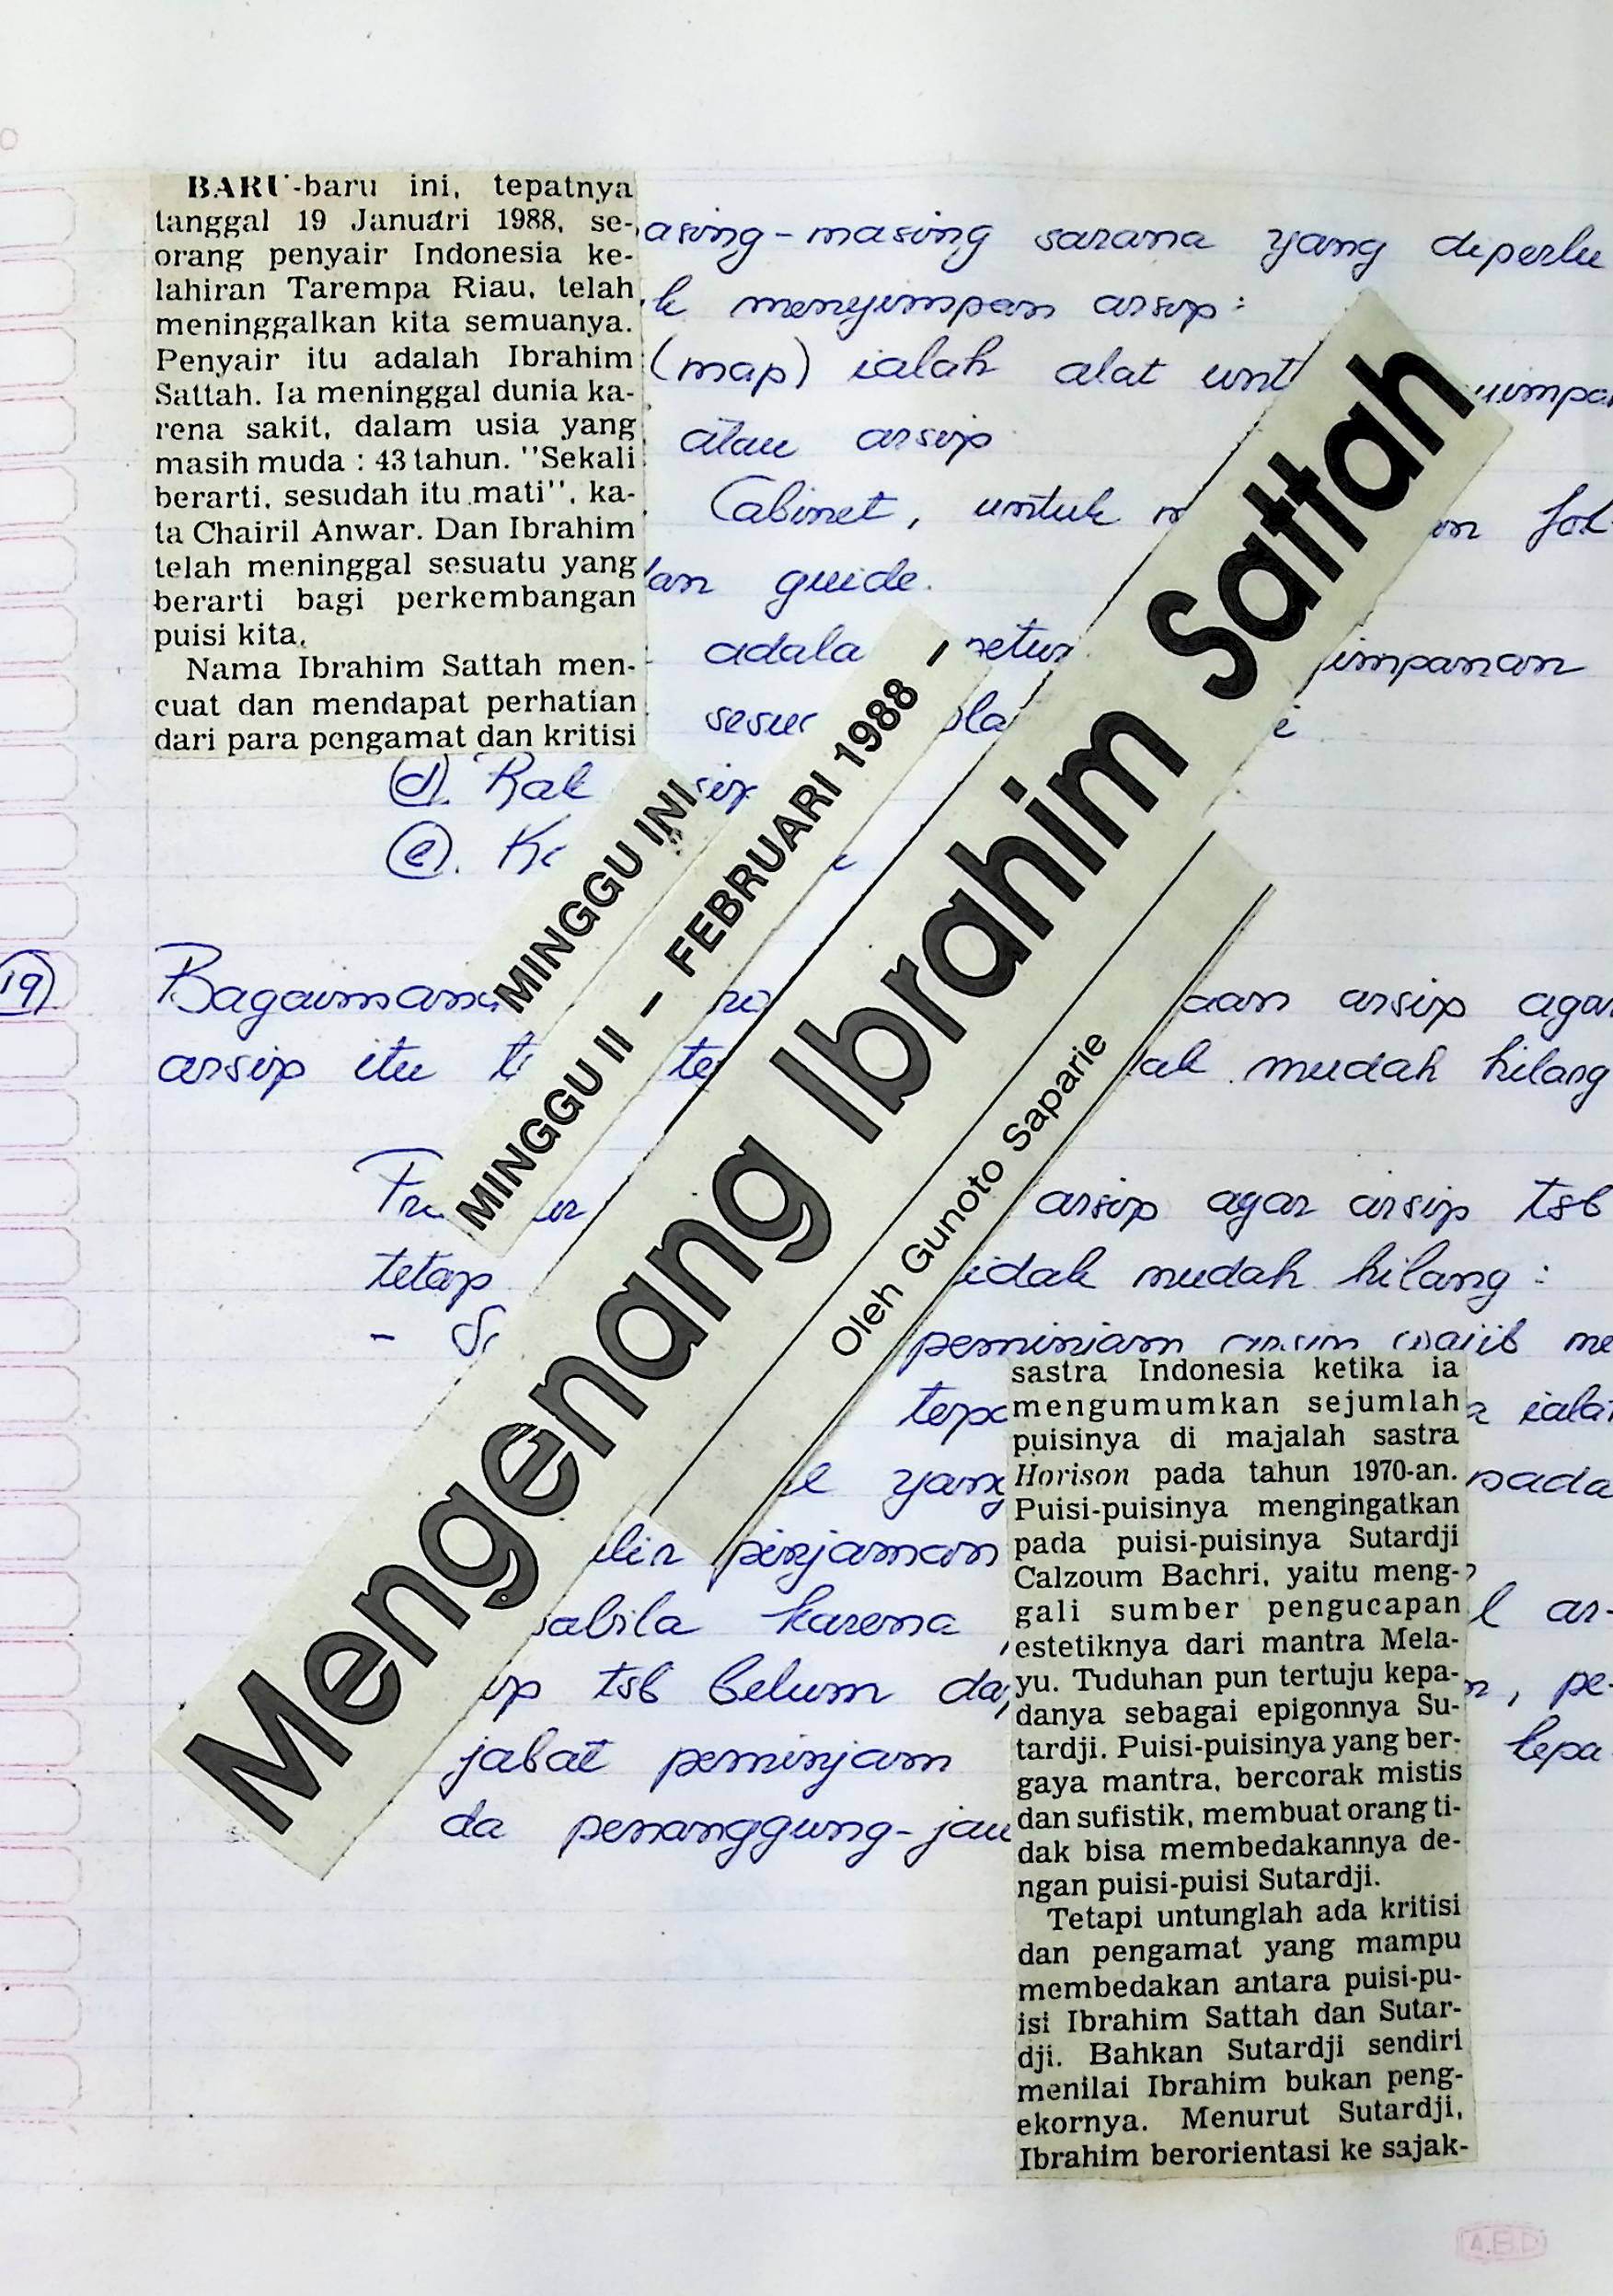 BARU-baru ini, tepatnya
tanggal 19 Januari 1988, se-
orang penyair Indonesia ke-
lahiran Tarempa Riau, telah
meninggalkan kita semuanya.
Penyair itu adalah Ibrahim
Sattah. Ia meninggal dunia ka-
rena sakit, dalam usia yang
masih muda : 43 tahun. "Sekali
berarti, sesudah itu mati", ka-
ta Chairil Anwar. Dan Ibrahim
telah meninggal sesuatu yang
berarti bagi perkembangan
puisi kita.
Nama Ibrahim Sattah men-
cuat dan mendapat perhatian
dari para pengamat dan kritisi
MINGGU INI
MINGGU II - FEBRUARI 1988 -
Mengenang Ibrahim Sattah
Oleh Gunoto Saparie
sastra Indonesia ketika ia
mengumumkan sejumlah
puisinya di majalah sastra
Horison pada tahun 1970-an.
Puisi-puisinya mengingatkan
pada puisi-puisinya Sutardji
Calzoum Bachri, yaitu meng-
gali sumber pengucapan
estetiknya dari mantra Mela-
yu. Tuduhan pun tertuju kepa-
danya sebagai epigonnya Su-
tardji. Puisi-puisinya yang ber-
gaya mantra, bercorak mistis
dan sufistik, membuat orang ti-
dak bisa membedakannya de-
ngan puisi-puisi Sutardji.
Tetapi untunglah ada kritisi
dan pengamat yang mampu
membedakan antara puisi-pu-
isi Ibrahim Sattah dan Sutar-
dji. Bahkan Sutardji sendiri
menilai Ibrahim bukan peng-
ekornya. Menurut Sutardji,
Ibrahim berorientasi ke sajak-
asing-masing sarana yang diperlu
k menyimpan arsip :
(map) ialah alat unt
atau arsip
Cabinet, untuk
dan guide.
adala impanan
sesu
d. Rak
e.
19 aan arsip agar
arsip itu mudah hilang
arsip agar arsip tsb
tetap idak mudah hilang :
- peminjam arsip wajib me
yang pada
pinjaman
abila karena ar-
ip tsb belum da , pe-
jabat peminjam kepa-
da penanggung-jaw
A.B.D